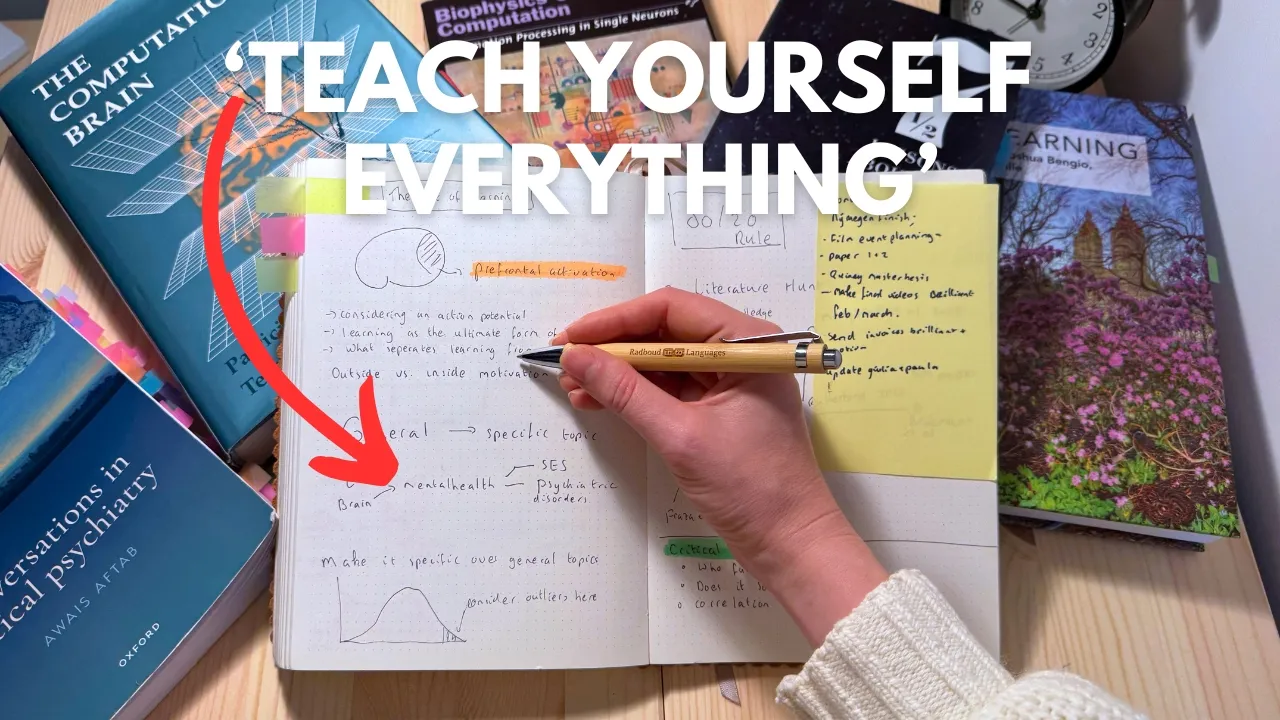 ‘TEACH YOURSELF
EVERYTHING’
THE
COMPUTATIO
BRAIN
Biophysics
Computation
Processing in Single Neurons
EARNING
shua Bengio,
Patric
Te
ersations in
ical psychiatry
AWAIS AFTAB
OXFORD
prefrontal activation
-> considering an action potential
-> learning as the ultimate form of
-> What seperates learning from
Outside vs. inside motivation
eral -> specific topic
Brain -> mentalhealth
SES
psychiatric
disorders
Make it specific over general topics
consider outliers here
80/20
Rule
Literature
Critical
Who
Does it
correlation
Nijmegen finish,
- Film event planning
- paper 1+2
- Make final videos Brilliant
feb/march.
Send invoices brilliant +
update
Radboud in'to Languages
12
1
2
3
4
5
1/2